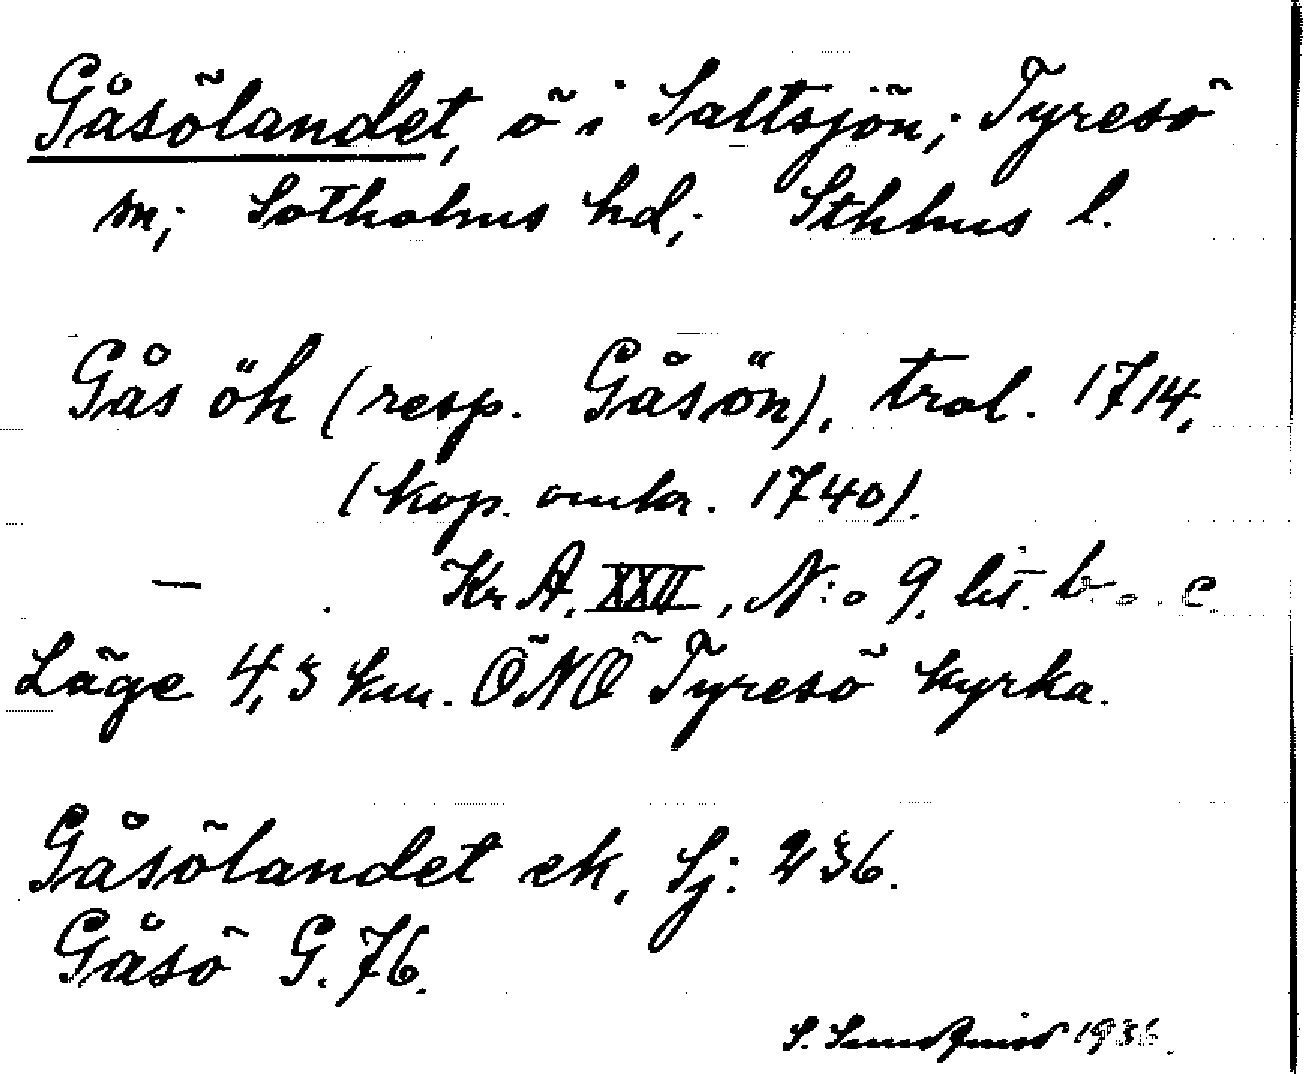 Gåsölandet, ö i Saltsjön; Tyresö
sn; Sotholms hd; Sthlms l.
Gås öh (resp. Gåsön), trol. 1714,
(kop. omkr. 1740).
— Kr A. XXII, N:o 9. lit. b o. c.
Läge 4,3 km. ÖNÖ Tyresö kyrka.
Gåsölandet ek, Sj: 236.
Gåsö G. 76.
S. Sundqvist 1936.